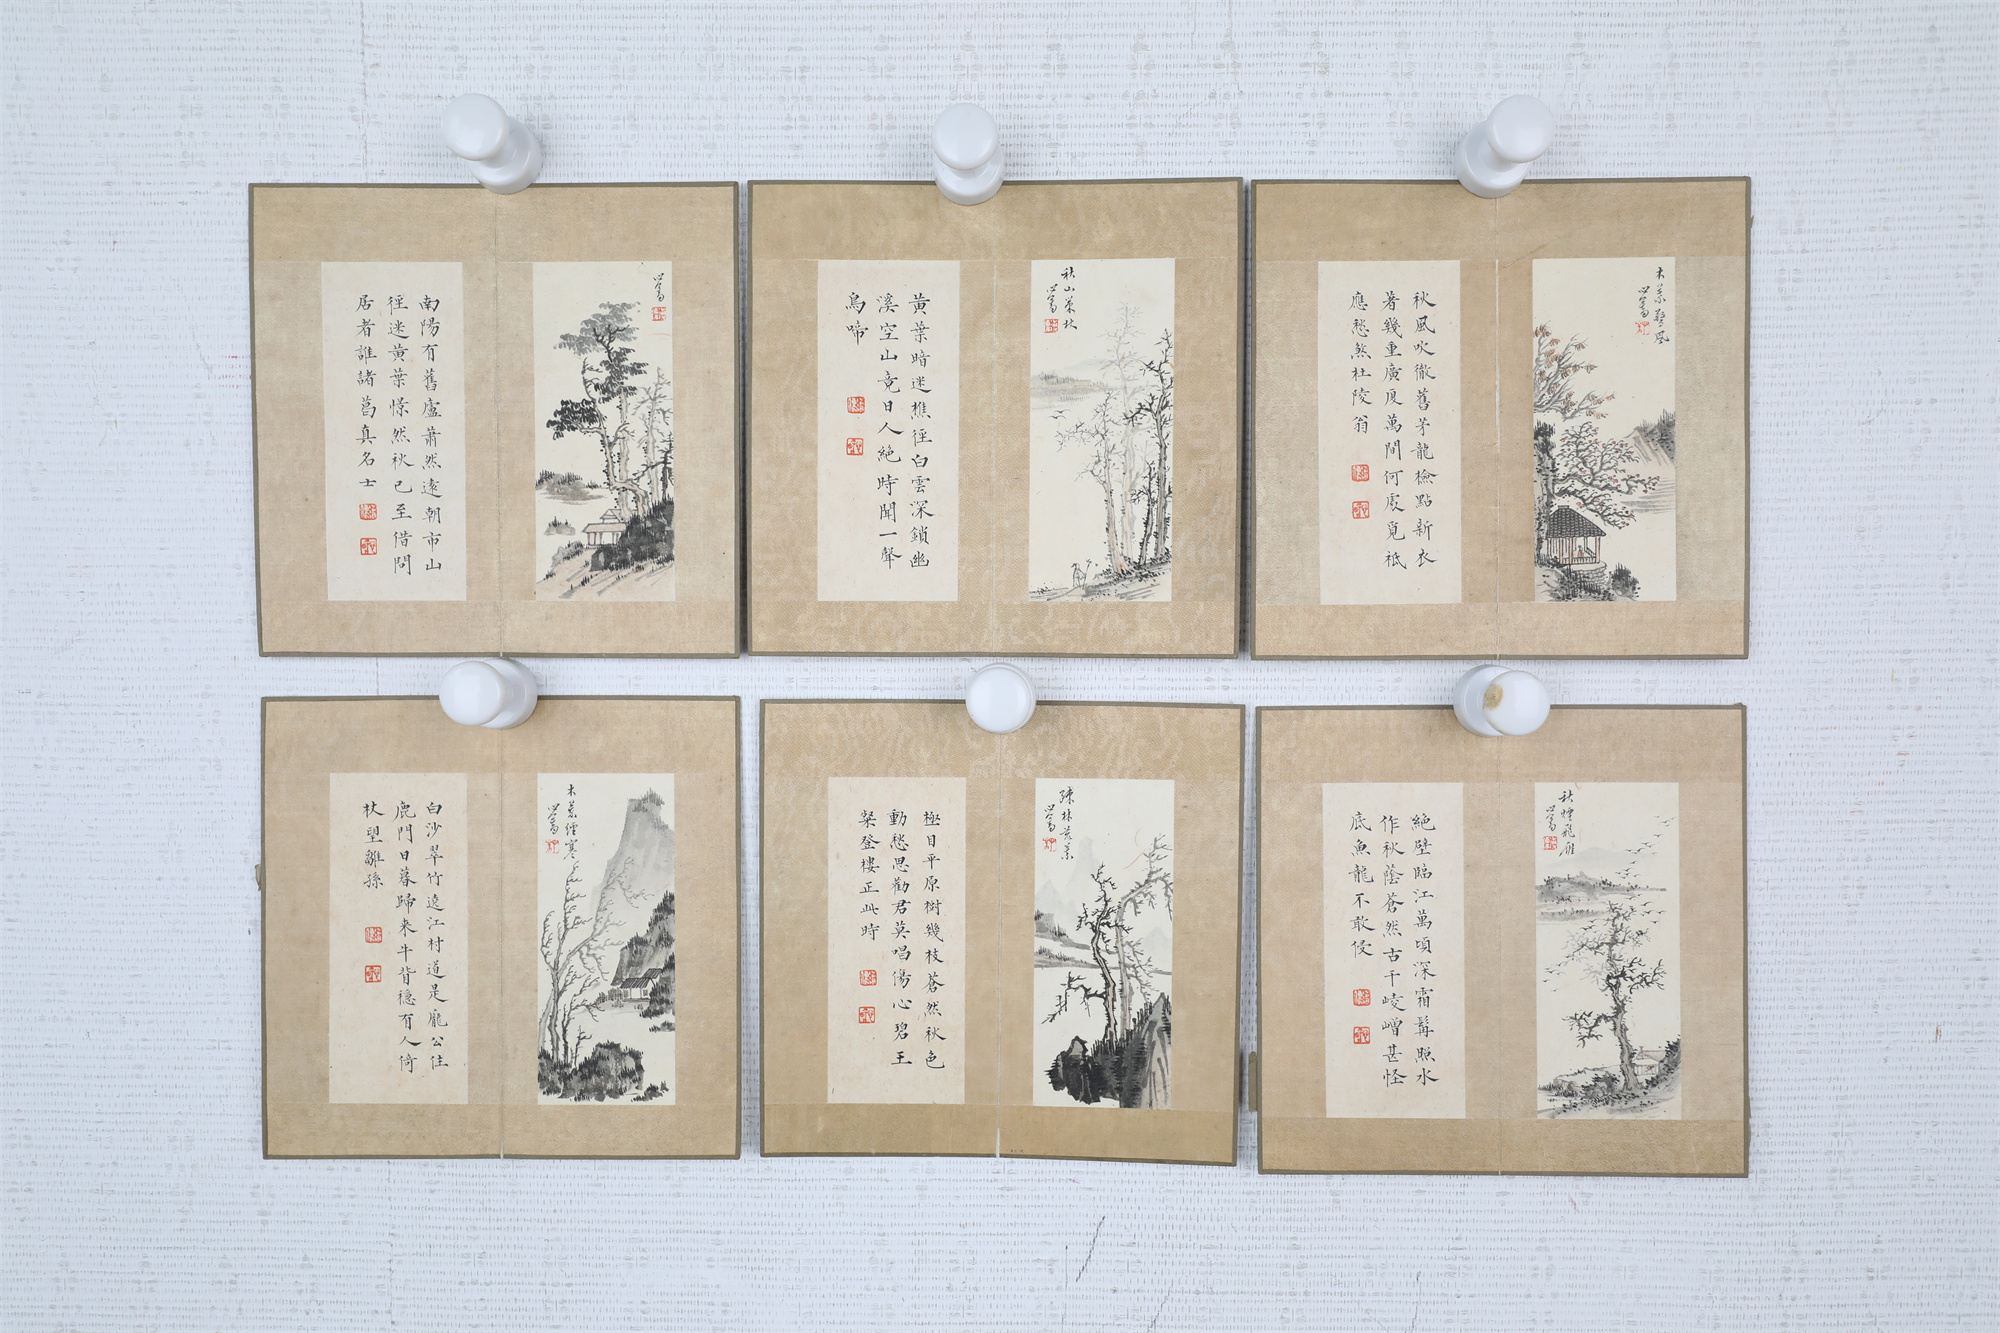 南陽有舊廬蕭然遠朝市山
徑迷黃葉憬然秋已至借問
居者誰諸葛真名士
心畬
黃葉暗迷樵徑白雲深鎖幽
溪空山竟日人絕時聞一聲
鳥啼
秋山策杖
心畬
秋風吹徹舊茅龍檢點新衣
著幾重廣厦萬間何處覓祗
應愁煞杜陵翁
木葉驚風
心畬
白沙翠竹遶江村道是龐公住
鹿門日暮歸來牛背穩有人倚
杖望雛孫
木葉經寒
心畬
極目平原樹幾枝蒼然秋色
動愁思勸君莫唱傷心碧王
粲登樓正此時
疎林黃葉
心畬
絕壁臨江萬頃深霜髯照水
作秋蔭蒼然古干崚嶒甚怪
底魚龍不敢侵
秋煙飛雁
心畬